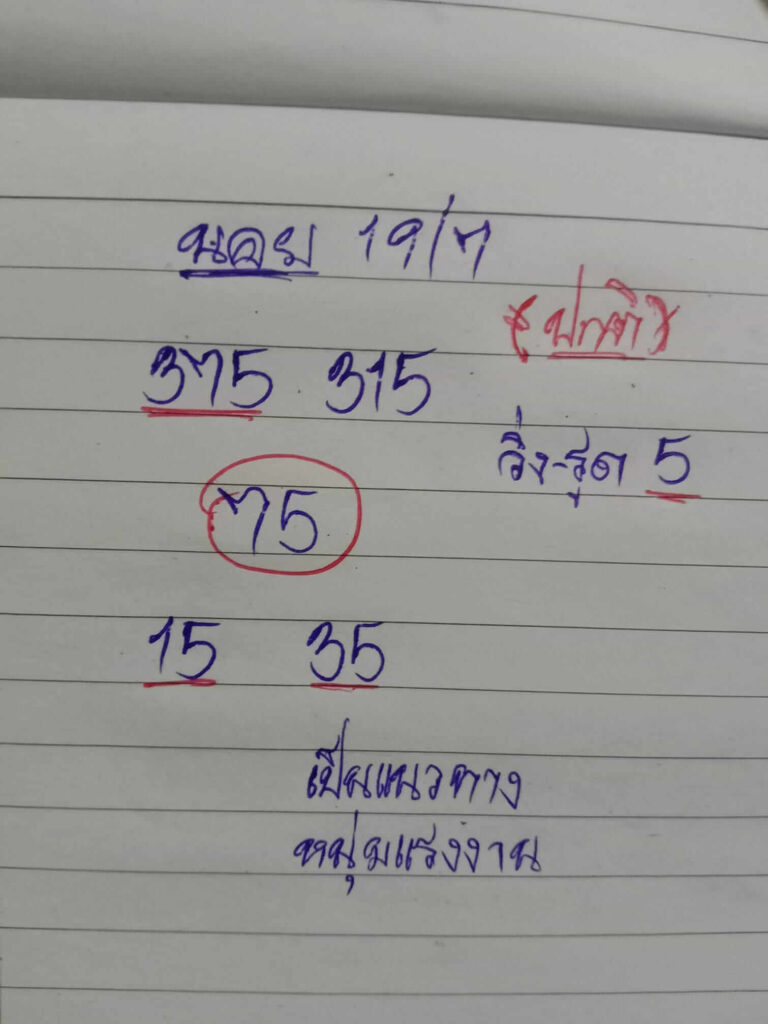 นอย 19/7
(ปกติ)
375 315
วิ่ง-รูด 5
75
15 35
เป็นแนวทาง
หนุ่มแรงงาน